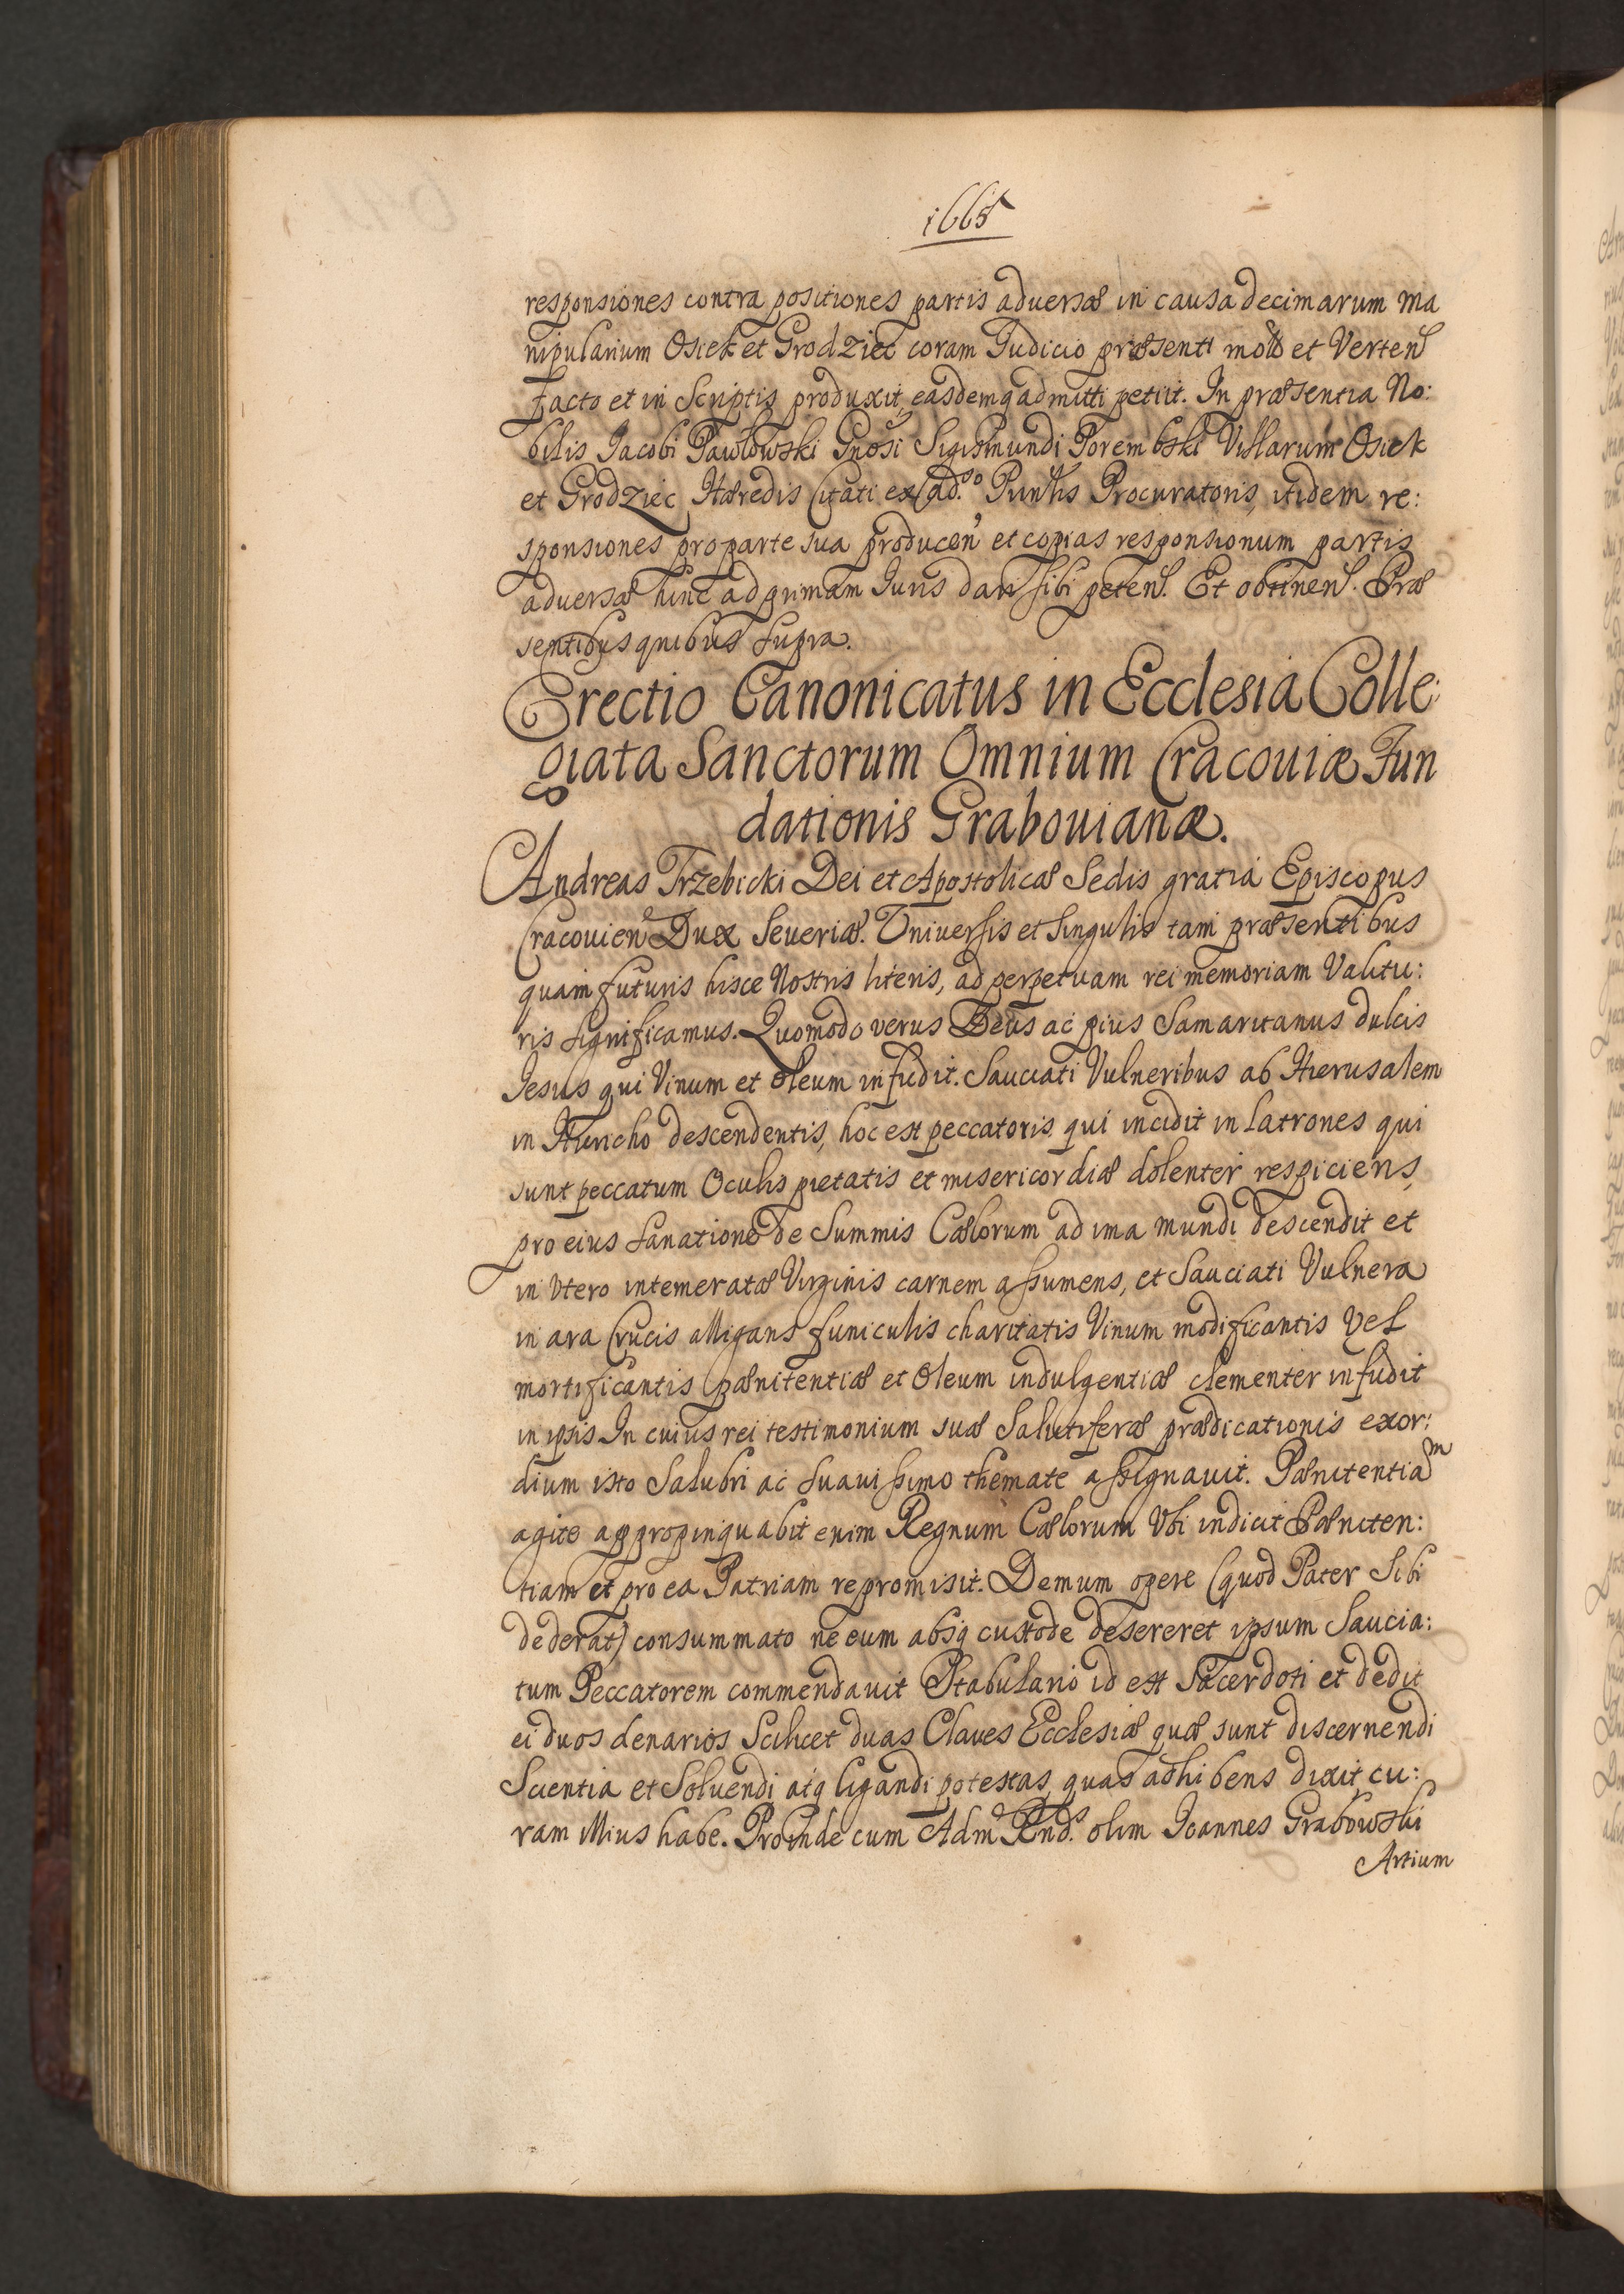 1665
responsiones contra positiones partis aduersæ in causa decimarum ma
nipularium Osiek et Grodziec coram Judicio præsenti et Verten
facto et in Scriptis produxit, easdemq admitti petiit. In præsentia No:
bilis Jacobi Pawlowski Gnosi Sigismundi Porembski Villarum Osiek
et Grodziec Hæredis Citati ex Procuratoris, itidem re:
sponsiones pro parte sua producen et copias responsionum partis
aduersæ hinc ad primam Iuris dari sibi peten. Et obtinen. Præ
sentibus quibus supra.
Erectio Canonicatus in Ecclesia Colle:
giata Sanctorum Omnium Cracouiæ Fun
dationis Grabouianæ.
Andreas Trzebicki Dei et Apostolicæ Sedis gratia Episcopus
Cracouien Dux Seueriæ. Uniuersis et singulis tam præsentibus
quam futuris hisce Nostris literis, ad perpetuam rei memoriam Valitu:
ris significamus. Quomodo verus Deus ac pius Samaritanus dulcis
Jesus qui Vinum et Oleum infudit. Sauciati Vulneribus ab Hierusalem
in Hiericho descendentis, hoc est peccatoris, qui incidit in latrones qui
sunt peccatum Oculis pietatis et misericordiæ dolenter respiciens,
pro eius sanatione de Summis Cælorum ad ima mundi descendit et
in Vtero intemeratæ Virginis carnem assumens, et Sauciati Vulnera
in ara Crucis alligans funiculis charitatis Vinum modificantis vel
mortificantis pænitentiæ et Oleum indulgentiæ clementer infudit
in ipsis. In cuius rei testimonium suæ Salutiferæ prædicationis exor:
dium isto Salubri ac suauissimo themate assignauit. Pænitentiam
agite appropinquabit enim Regnum Cælorum Vbi indicit Pæniten:
tiam et pro ea Patriam repromisit. Demum opere (quod Pater Sibi
dederat) consummato ne eum absq custode desereret ipsum Saucia:
tum Peccatorem commendauit Stabulario id est Sacerdoti et dedit
ei duos denarios Scilicet duas Claues Ecclesiæ quæ sunt discernendi
Scientia et Soluendi atq ligandi potestas, quas adhibens dixit, cu:
ram illius habe. Proinde cum Adm Rnds. olim Joannes Grabowski
Artium